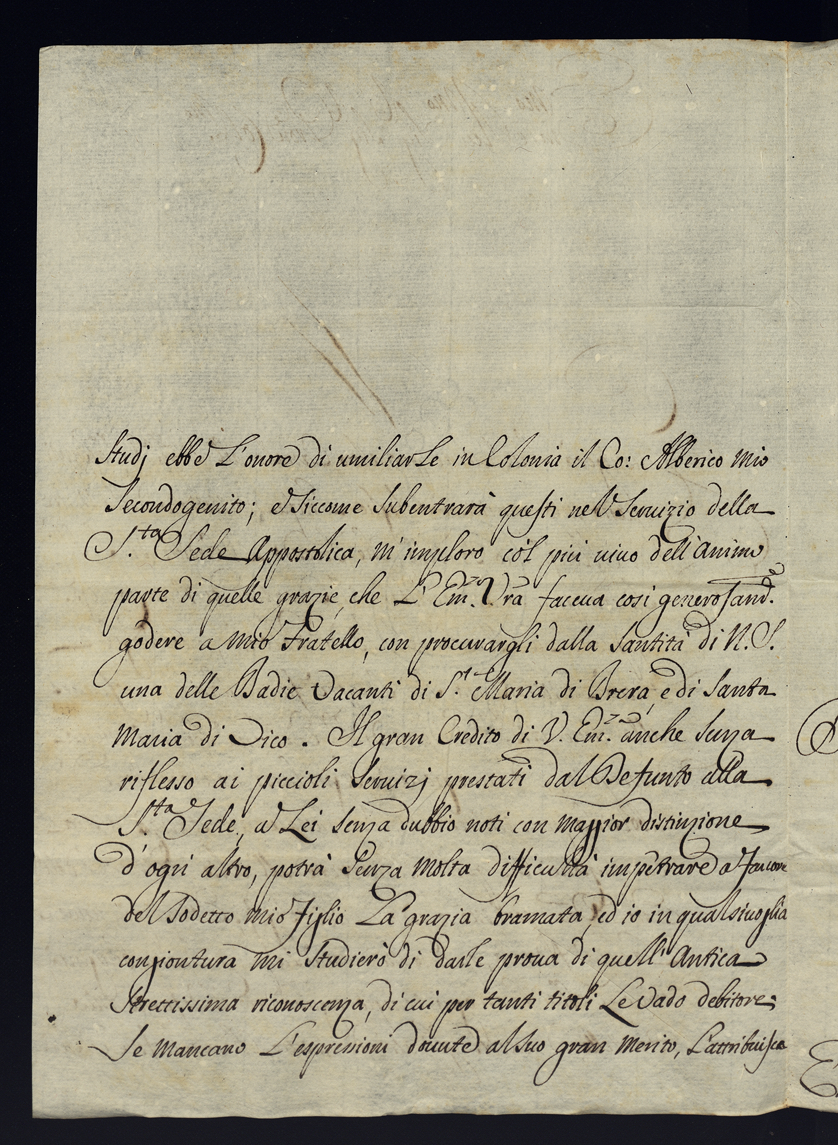 Studj ebbe L'onore di umiliarLe in Colonia il Co: Alberico mio
Secondogenito; e siccome subentrarà questi nel Servizio della
S.ta Sede Appostolica, m'imploro col più vivo dell'animo
parte di quelle grazie, che L'Em.za Vra faceva così generosam.te
godere a mio Fratello, con procurargli dalla Santità di N. S.
una delle Badie Vacanti di S.ta Maria di Brera, e di Santa
Maria di Vico. Il gran Credito di V. Em.za anche senza
riflesso ai piccioli servizj prestati dal Defunto alla
S.ta Sede, a Lei senza dubbio noti con maggior distinzione
d'ogni altro, potrà senza molta difficultà impetrare a favore
del Sodetto mio figlio La grazia bramata, ed io in qualsivoglia
congiontura mi studierò di darle prova di quell'Antica
strettissima riconoscenza, di cui per tanti titoli Le Vado debitore;
Se mancano L'espressioni dovute al suo gran merito, L'attribuisca